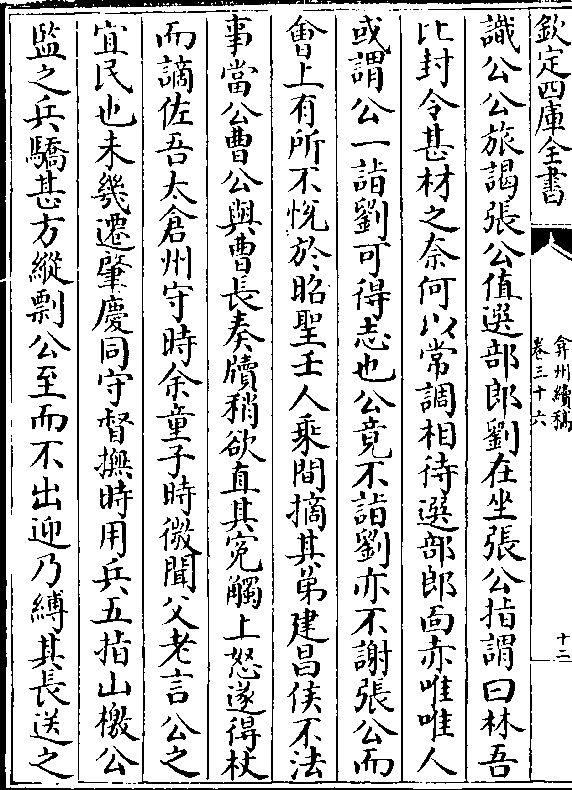 欽定四庫全書
弇州續稿
卷三十六
十二
識公公旅謁張公值選部郎劉在坐張公指謂曰林吾
比封令甚材之奈何以常調相待選部郎面赤唯唯人
或謂公一詣劉可得志也公竟不詣劉亦不謝張公而
會上有所不悅於昭聖壬人乘間摘其弟建昌侯不法
事當公曹公與曹長奏牘稍欲直其冤觸上怒遂得杖
而謫佐吾太倉州守時余童子時微聞父老言公之
宜民也未幾遷肇慶同守督撫時用兵五指山檄公
監之兵驕甚方縱剽公至而不出迎乃縛其長送之